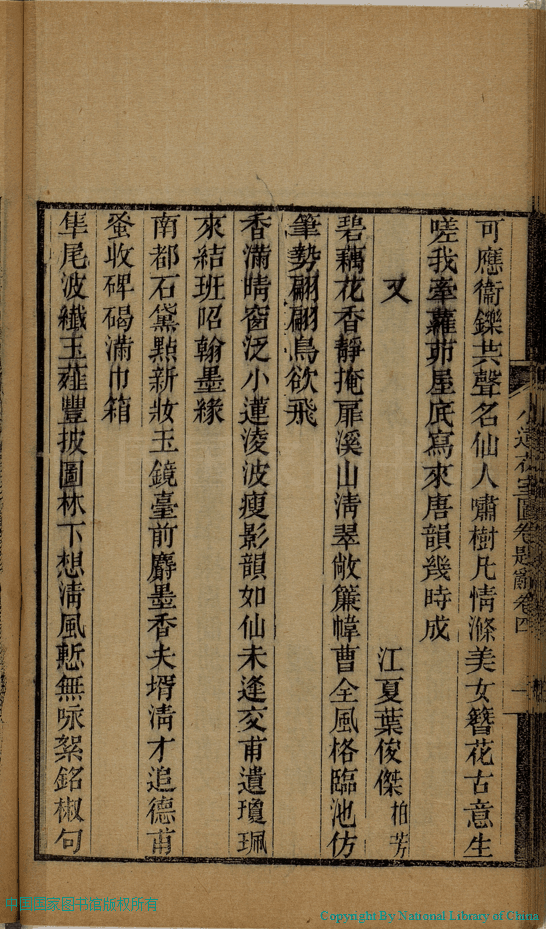 可應衞鑠共聲名仙人嘯樹凡情滌美女簪花古意生
嗟我牽蘿茆屋底寫來唐韻幾時成
又
江夏葉俊傑柏芳
碧藕花香靜掩扉溪山淸翠敞簾幃曹全風格臨池仿
筆勢翩翩鳥欲飛
香滿晴窗泛小蓮淩波瘦影韻如仙未逢交甫遺瓊珮
來結班昭翰墨緣
南都石黛點新妝玉鏡臺前麝墨香夫壻淸才追德甫
蚤收碑碣滿巾箱
隼尾波纖玉薤豐披圖林下想淸風慙無咏絮銘椒句
小蓮花室圖卷題辭卷四
一
中国国家图书馆版权所有
Copyright By National Library of China